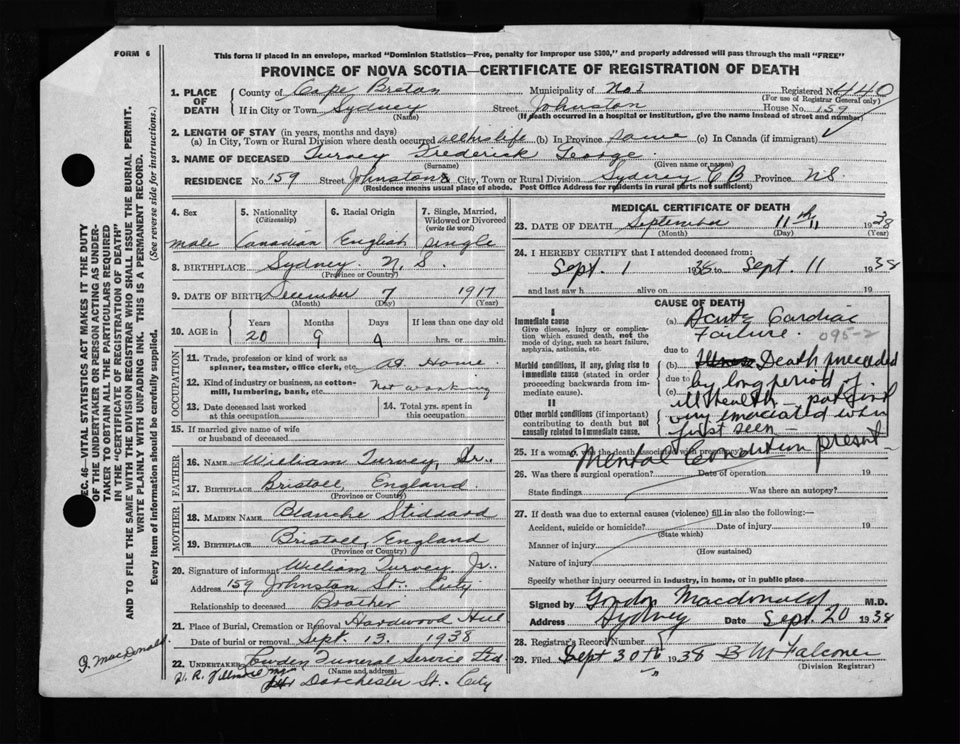 FORM 6
This form if placed in an envelope, marked "Dominion Statistics—Free, penalty for improper use $300," and properly addressed will pass through the mail "FREE"
PROVINCE OF NOVA SCOTIA—CERTIFICATE OF REGISTRATION OF DEATH
1. PLACE OF DEATH County of Cape Breton Municipality of No1 Registered No. 440
(For use of Registrar General only)
If in City or Town Sydney Street Johnston House No. 159
(Name) (If death occurred in a hospital or institution, give the name instead of street and number)
2. LENGTH OF STAY (in years, months and days)
(a) In City, Town or Rural Division where death occurred all his life (b) In Province same (c) In Canada (if immigrant)
3. NAME OF DECEASED Turvey Frederick George
(Surname) (Given name or names)
RESIDENCE No. 159 Street Johnston City, Town or Rural Division Sydney C B Province N.S.
(Residence means usual place of abode. Post Office Address for residents in rural parts not sufficient)
4. Sex 5. Nationality (Citizenship) 6. Racial Origin 7. Single, Married, Widowed or Divorced (write the word)
male Canadian English single
8. BIRTHPLACE Sydney N. S.
(Province or Country)
9. DATE OF BIRTH December 7 1917
(Month) (Day) (Year)
10. AGE in Years Months Days If less than one day old
20 9 4 hrs. or min.
OCCUPATION
11. Trade, profession or kind of work as spinner, teamster, office clerk, etc. at Home
12. Kind of industry or business, as cotton-mill, lumbering, bank, etc. Not working
13. Date deceased last worked at this occupation 14. Total yrs. spent in this occupation
15. If married give name of wife or husband of deceased
FATHER
16. NAME William Turvey, Sr.
17. BIRTHPLACE Bristoll, England
(Province or Country)
MOTHER
18. MAIDEN NAME Blanche Stiddard
19. BIRTHPLACE Bristoll, England
(Province or Country)
20. Signature of informant William Turvey Jr.
Address 159 Johnston St. City
Relationship to deceased Brother
21. Place of Burial, Cremation or Removal Hardwood Hill
Date of burial or removal Sept. 13. 1938
22. UNDERTAKER Funeral Service Ltd.
(Name and address)
Dorchester St. City
MEDICAL CERTIFICATE OF DEATH
23. DATE OF DEATH September 11th 1938
(Month) (Day) (Year)
24. I HEREBY CERTIFY that I attended deceased from:
Sept. 1 1938 to Sept. 11 1938
and last saw h alive on 19
CAUSE OF DEATH
I
Immediate cause
Give disease, injury or complication which caused death, not the mode of dying, such as heart failure, asphyxia, asthenia, etc.
(a) Acute Cardiac Failure
095-2
due to
Morbid conditions, if any, giving rise to immediate cause (stated in order proceeding backwards from immediate cause).
(b) Death preceded
due to by long period of
(c) ill health —
very emaciated when
first seen —
II
Other morbid conditions (if important) contributing to death but not causally related to immediate cause.
Mental Condition present
25. If a woman, was the death associated with pregnancy?
26. Was there a surgical operation? Date of operation 19
State findings Was there an autopsy?
27. If death was due to external causes (violence) fill in also the following:—
Accident, suicide or homicide? Date of injury 19
(State which)
Manner of injury
(How sustained)
Nature of injury
Specify whether injury occurred in industry, in home, or in public place
Signed by Gordon Macdonald M.D.
Address Sydney Date Sept. 20 1938
28. Registrar's Record Number
29. Filed Sept 30th 1938 B M Falconer
(Division Registrar)
SEC. 46—VITAL STATISTICS ACT MAKES IT THE DUTY
OF THE UNDERTAKER OR PERSON ACTING AS UNDER-
TAKER TO OBTAIN ALL THE PARTICULARS REQUIRED
IN THE "CERTIFICATE OF REGISTRATION OF DEATH"
AND TO FILE THE SAME WITH THE DIVISION REGISTRAR WHO SHALL ISSUE THE BURIAL PERMIT.
WRITE PLAINLY WITH UNFADING INK. THIS IS A PERMANENT RECORD.
Every item of information should be carefully supplied. (See reverse side for instructions.)
J. MacDonald